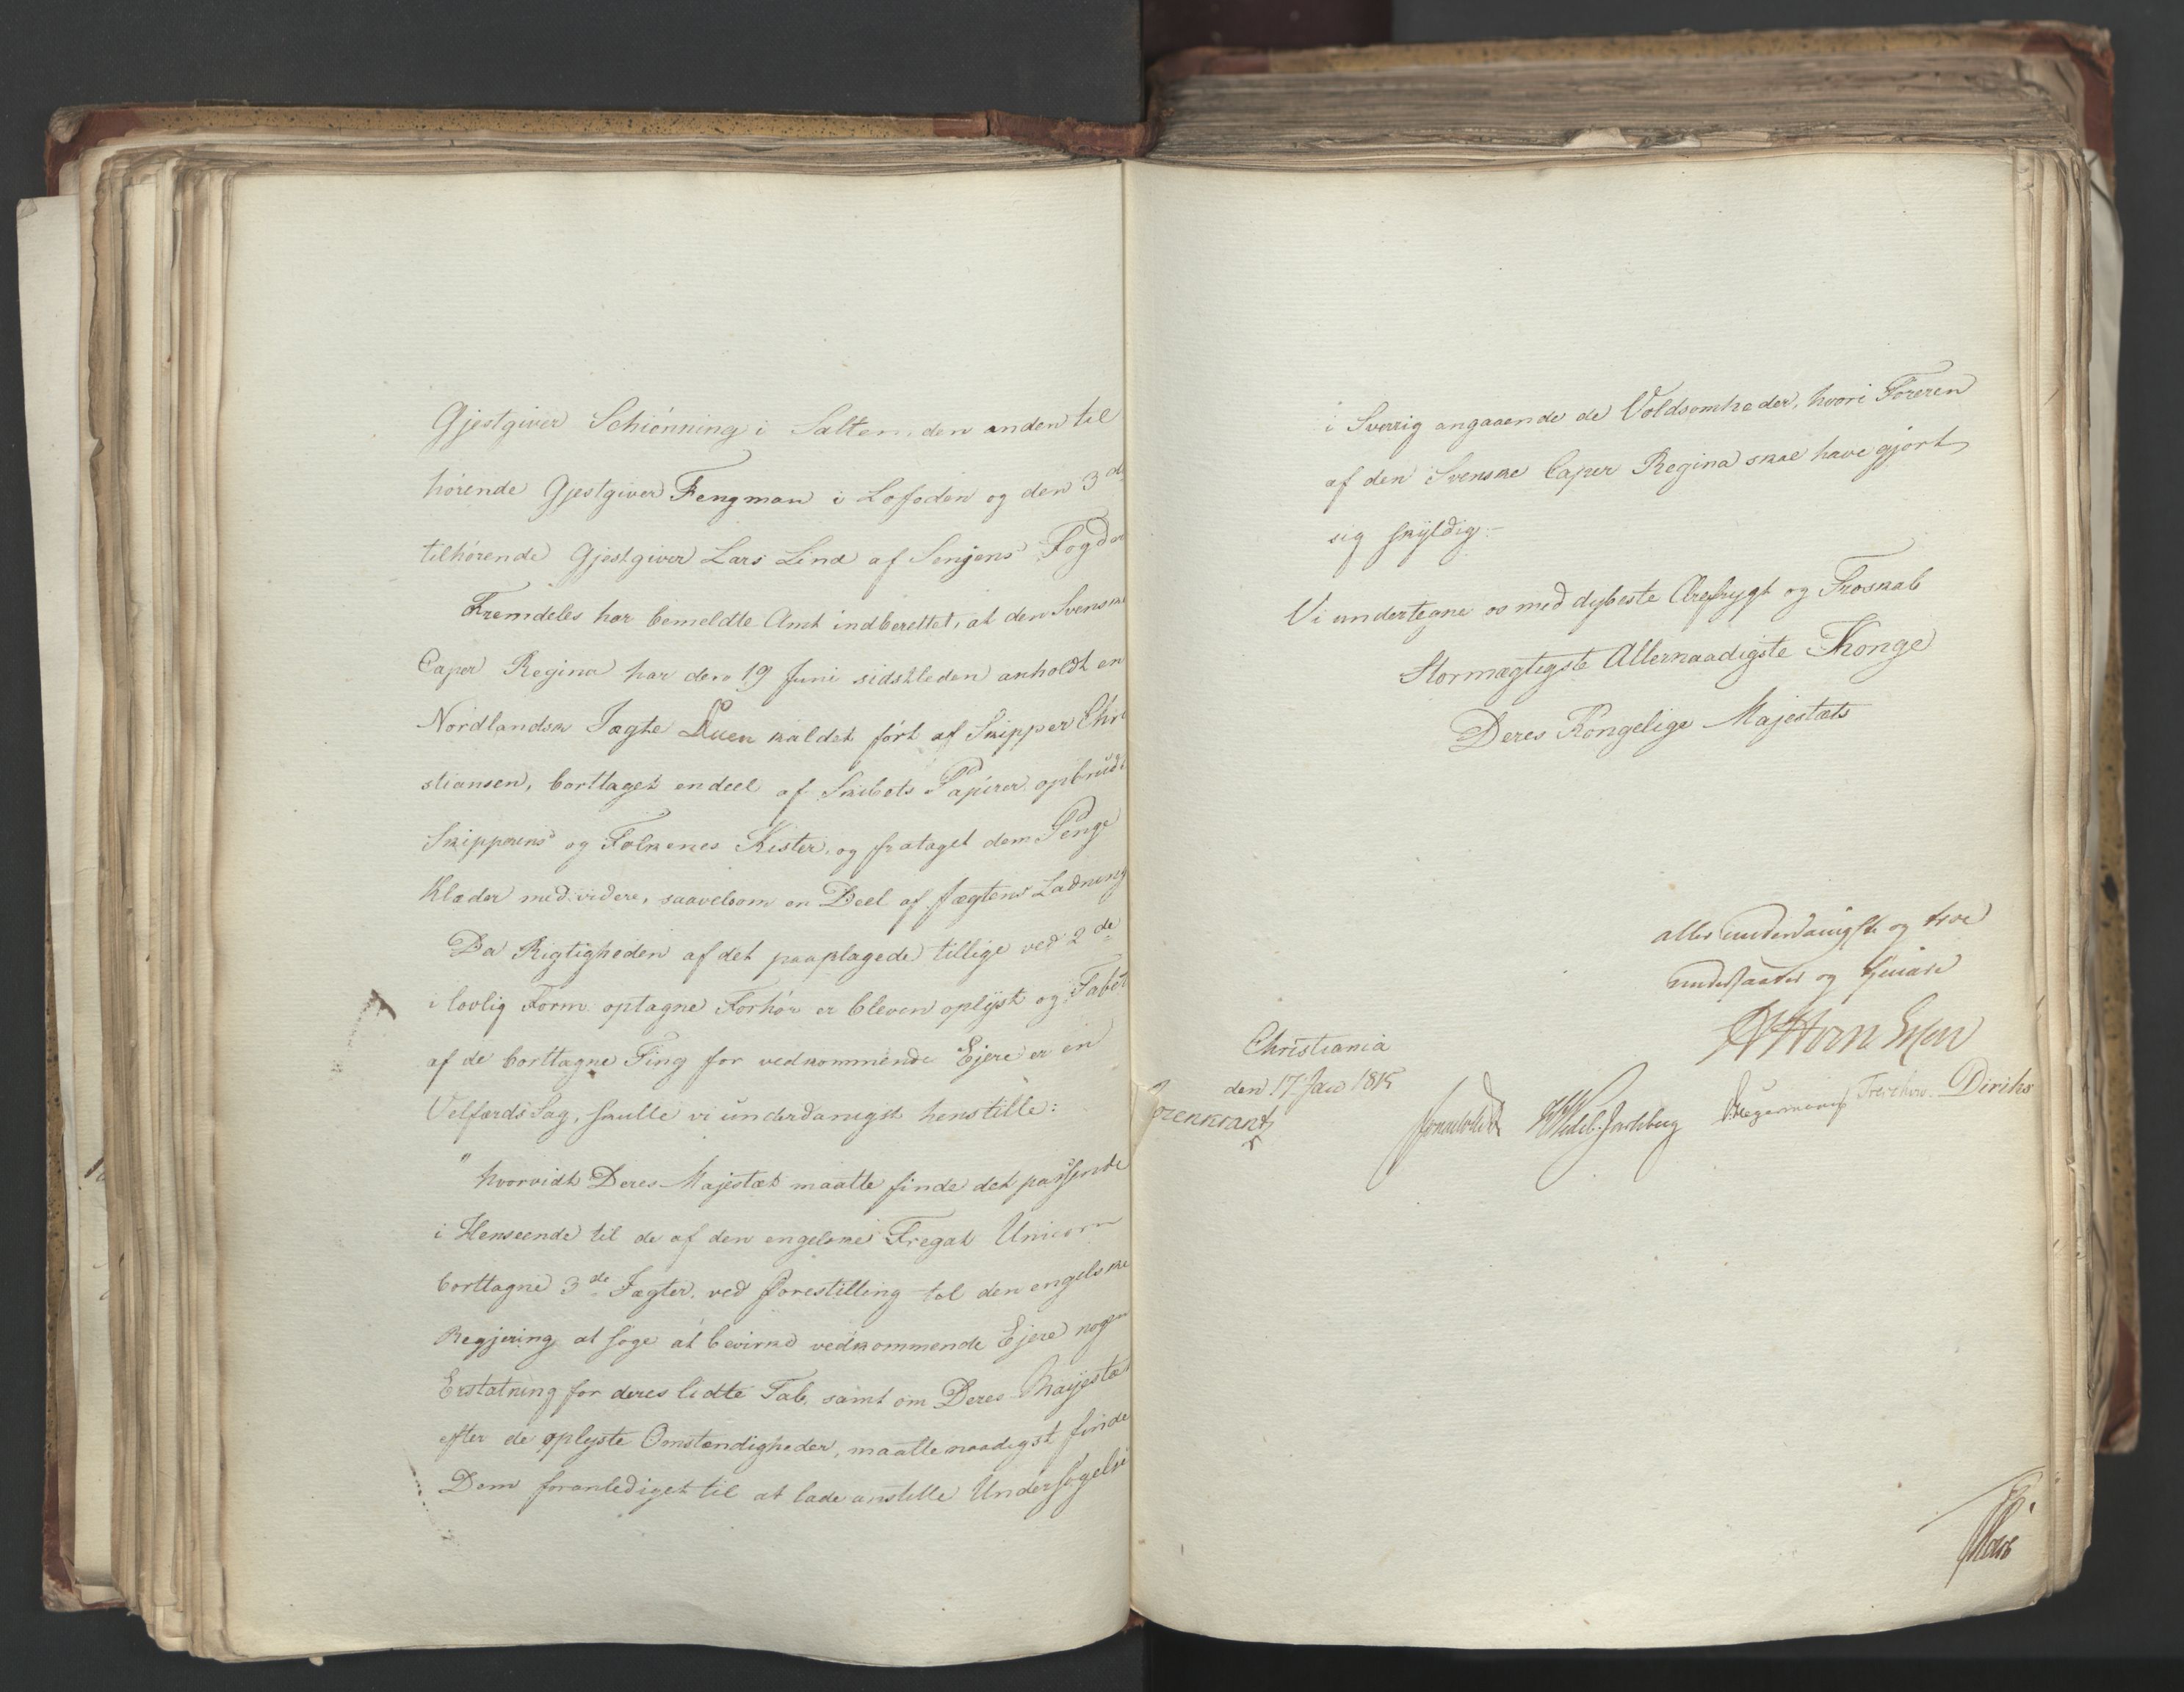 Gjestgiver Schiønning i Salten, den anden til
hørende Gjestgiver Fengman i Lofoden og den 3de
tilhørende Gjestgiver Lars Lind af Senjens Fogde
Fremdeles har bemeldte Amt indberettet, at den Svenske
Caper Regina har den 19 Juni sidstleden anholdt en
Nordlandsk Jægte Duen kaldet ført af Skipper Chri
stiansen, borttaget endeel af Skibets Papirer opbrudt
Skipperens og Folkenes Kister, og frataget dem Penge
Klæder med videre, saavelsom en Deel af Jægtens Ladning
Da Rigtigheden af det paaklagede tillige ved 2de
i lovlig Form optagne Forhør er bleven oplyst og Tabet
af de borttagne Ting for vedkommende Ejere er en
Velfærds Sag, skulle vi underdanigst henstille:
" hvorvidt Deres Majestæt maatte finde det passende
i Henseende til de af den engelske Fregat Unicorn
borttagne 3de Jægter, ved Forestilling til den engelske
Regjering at søge at bevirke vedkommende Ejere nogen
Erstatning for deres lidte Tab, samt om Deres Majestæt
efter de oplyste Omstændigheder, maatte naadigst finde
Dem foranlediget til at lade anstille Undersøgelse
i Sverrig angaaende de Voldsomheder, hvori Føreren
af den Svenske Caper Regina skal have gjort
sig skyldig.-
Vi undertegne os med dybeste Ærefrygt og Troskab
Stormægtigste Allernaadigste Konge
Deres Kongelige Majestæts
allerunderdanigste og troe
undersaatter og tjenere
Christiania
den 17 Jan 1815
Sommerhielm HWedel-Jarlsberg Hegermann Treschow. Diriks